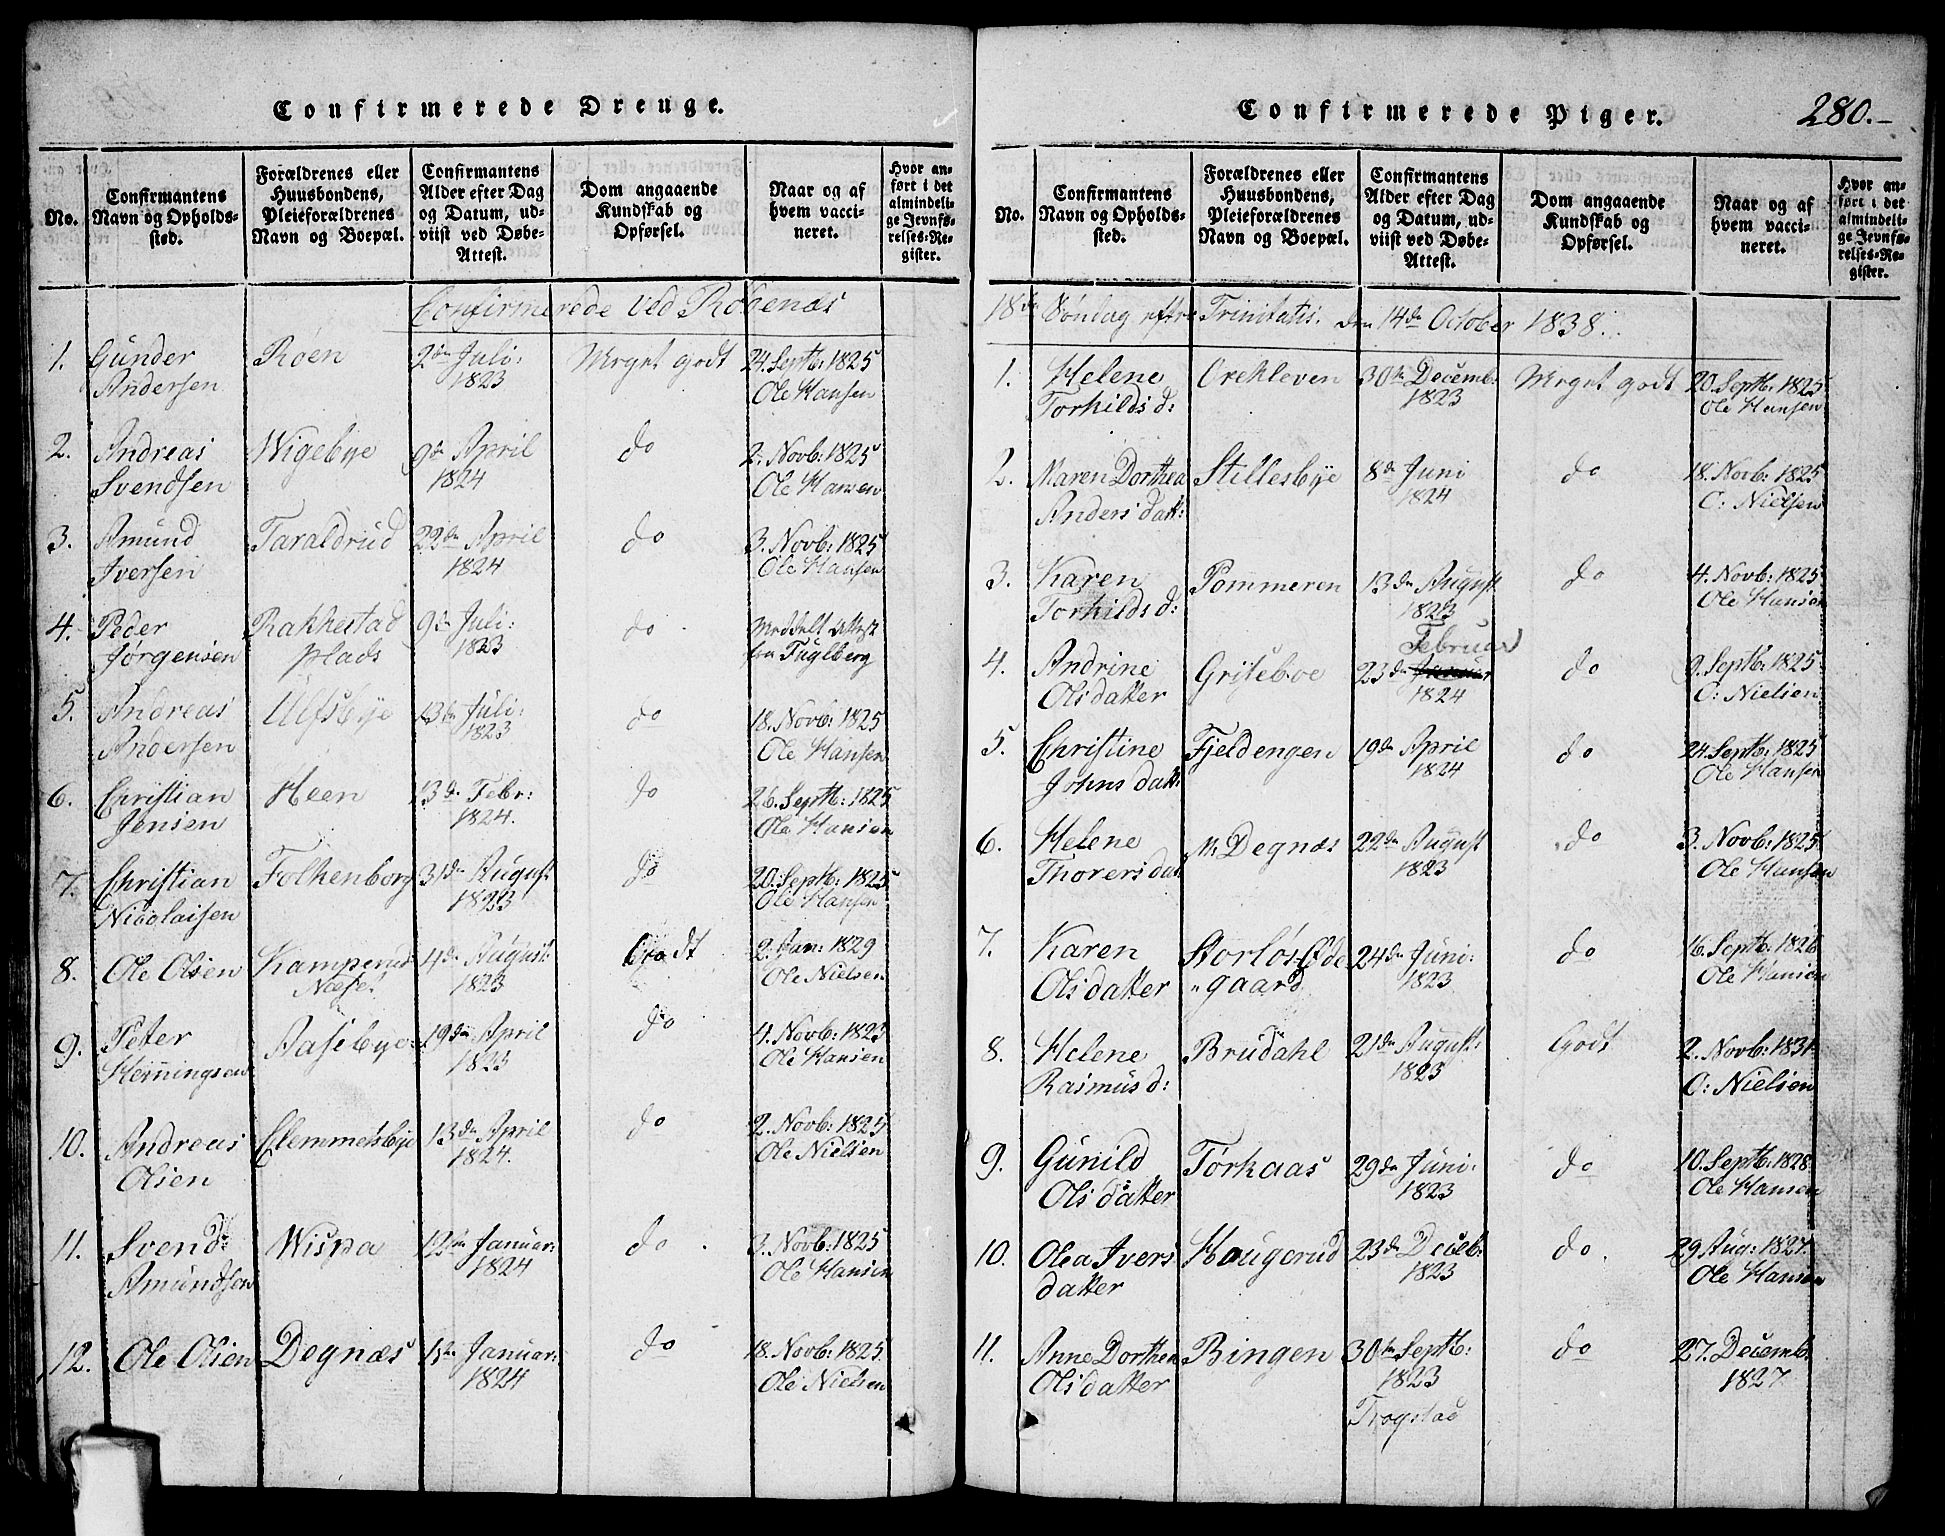 Confirmerede Drenge.
No.
Confirmantens Navn og Opholds-
sted.
Forældrenes eller
Huusbondens,
Pleieforældrenes
Navn og Boepæl.
Confirmantens
Alder efter Dag
og Datum, ud-
viist ved Døbe-
Attest.
Dom angaaende
Kundskab og
Opførsel.
Naar og af
hvem vacci-
neret.
Hvor an-
ført i det
almindeli-
ge Jevnfø-
relses-Re-
gister.
Confirmerede ved Rødenæs
1. Gunder Roen 2den Juli: Meget godt 24. Septb: 1825
Andersen 1823 Ole Hansen
2. Andreas Wigebye 9de April do 2. Novb: 1825
Svendsen 1824 Ole Hansen
3. Amund Taraldrud 22de April do 3. Novb: 1825
Iversen 1824 Ole Hansen
4. Peder Rakkestad 9de Juli: do Meddelt Attest
Jørgensen plads 1823 fra Fuglberg
5. Andreas Ulfsbye 13de Juli: do 18. Novb: 1825
Andersen 1823 Ole Hansen
6. Christian Heen 13de Febr: do 26. Septb: 1825
Jensen 1824. Ole Hansen
7. Christian Folkenborg 31de August do 20. Septb: 1825
Nicolaisen 1823 Ole Hansen
8. Ole Olsen Kamperud 4de August: Godt 2. Jan: 1829
Næset 1823 Ole Nielsen
9. Peter Aasebye 19de April do 4. Novb: 1823
Hemingsen 1823 Ole Hansen
10. Andreas Clemmetsbye 13de April do 2. Novb: 1825
Olsen 1824. Ole Nielsen
11. Svend Wispa 12te Januar: do 3. Novb: 1825
Amundsen 1824 Ole Hansen
12. Ole Olsen Degnæs 1ste Januar: do 18. Novb: 1825
1824 Ole Nielsen
Confirmerede Piger. 280.-
No.
Confirmantens
Navn og Opholds-
sted.
Forældrenes eller
Huusbondens,
Pleieforældrenes
Navn og Boepæl.
Confirmantens
Alder efter Dag
og Datum, ud-
viist ved Døbe-
Attest.
Dom angaaende
Kundskab og
Opførsel.
Naar og af
hvem vacci-
neret.
Hvor an-
ført i det
almindeli-
ge Jevnfø-
relses-Re-
gister.
18de Søndag efter Trinitatis. den 14de October 1838.
1. Helene Orekleven 30te Decemb: Meget godt 20. Septb: 1825
Torkilds d: 1823 Ole Hansen
2. Maren Dorthea Stillesbye 8de Juni do 18. Novb: 1825
Anders datt: 1824 O: Nielsen
3. Karen Pommeren 13de August do 4. Novb: 1825
Torkilds d: 1823 Ole Hansen
Februar
4. Andrine Griseboe 23de Januar do 9. Septb: 1825
Olsdatter 1824 O: Nielsen
5. Christine Fjeldengen 19de April do 24. Septb: 1825
Johns datt: 1824 Ole Hansen
6. Helene M: Degnæs 22de August do 3. Novb: 1825
Thorers dat 1823 Ole Hansen
7. Karen Storløs Øde- 24de Juni: do 16. Septb: 1826
Olsdatter "gaard 1823 Ole Hansen
8. Helene Brudahl 21de August: Godt 2. Novb: 1831
Rasmus d: 1823 O: Nielsen
9. Gunild Torkaas 29de Juni: do 10. Septb: 1828
Olsdatter 1823 Ole Hansen
10. Olea Ivers Haugerud 23de Deceb: do. 29 Aug: 1827.
datter 1823 Ole Hansen
11. Anne Dorthea Bingen 30te Septb: do 27. Decemb:
Olsdatter 1823 1827
Trogstad